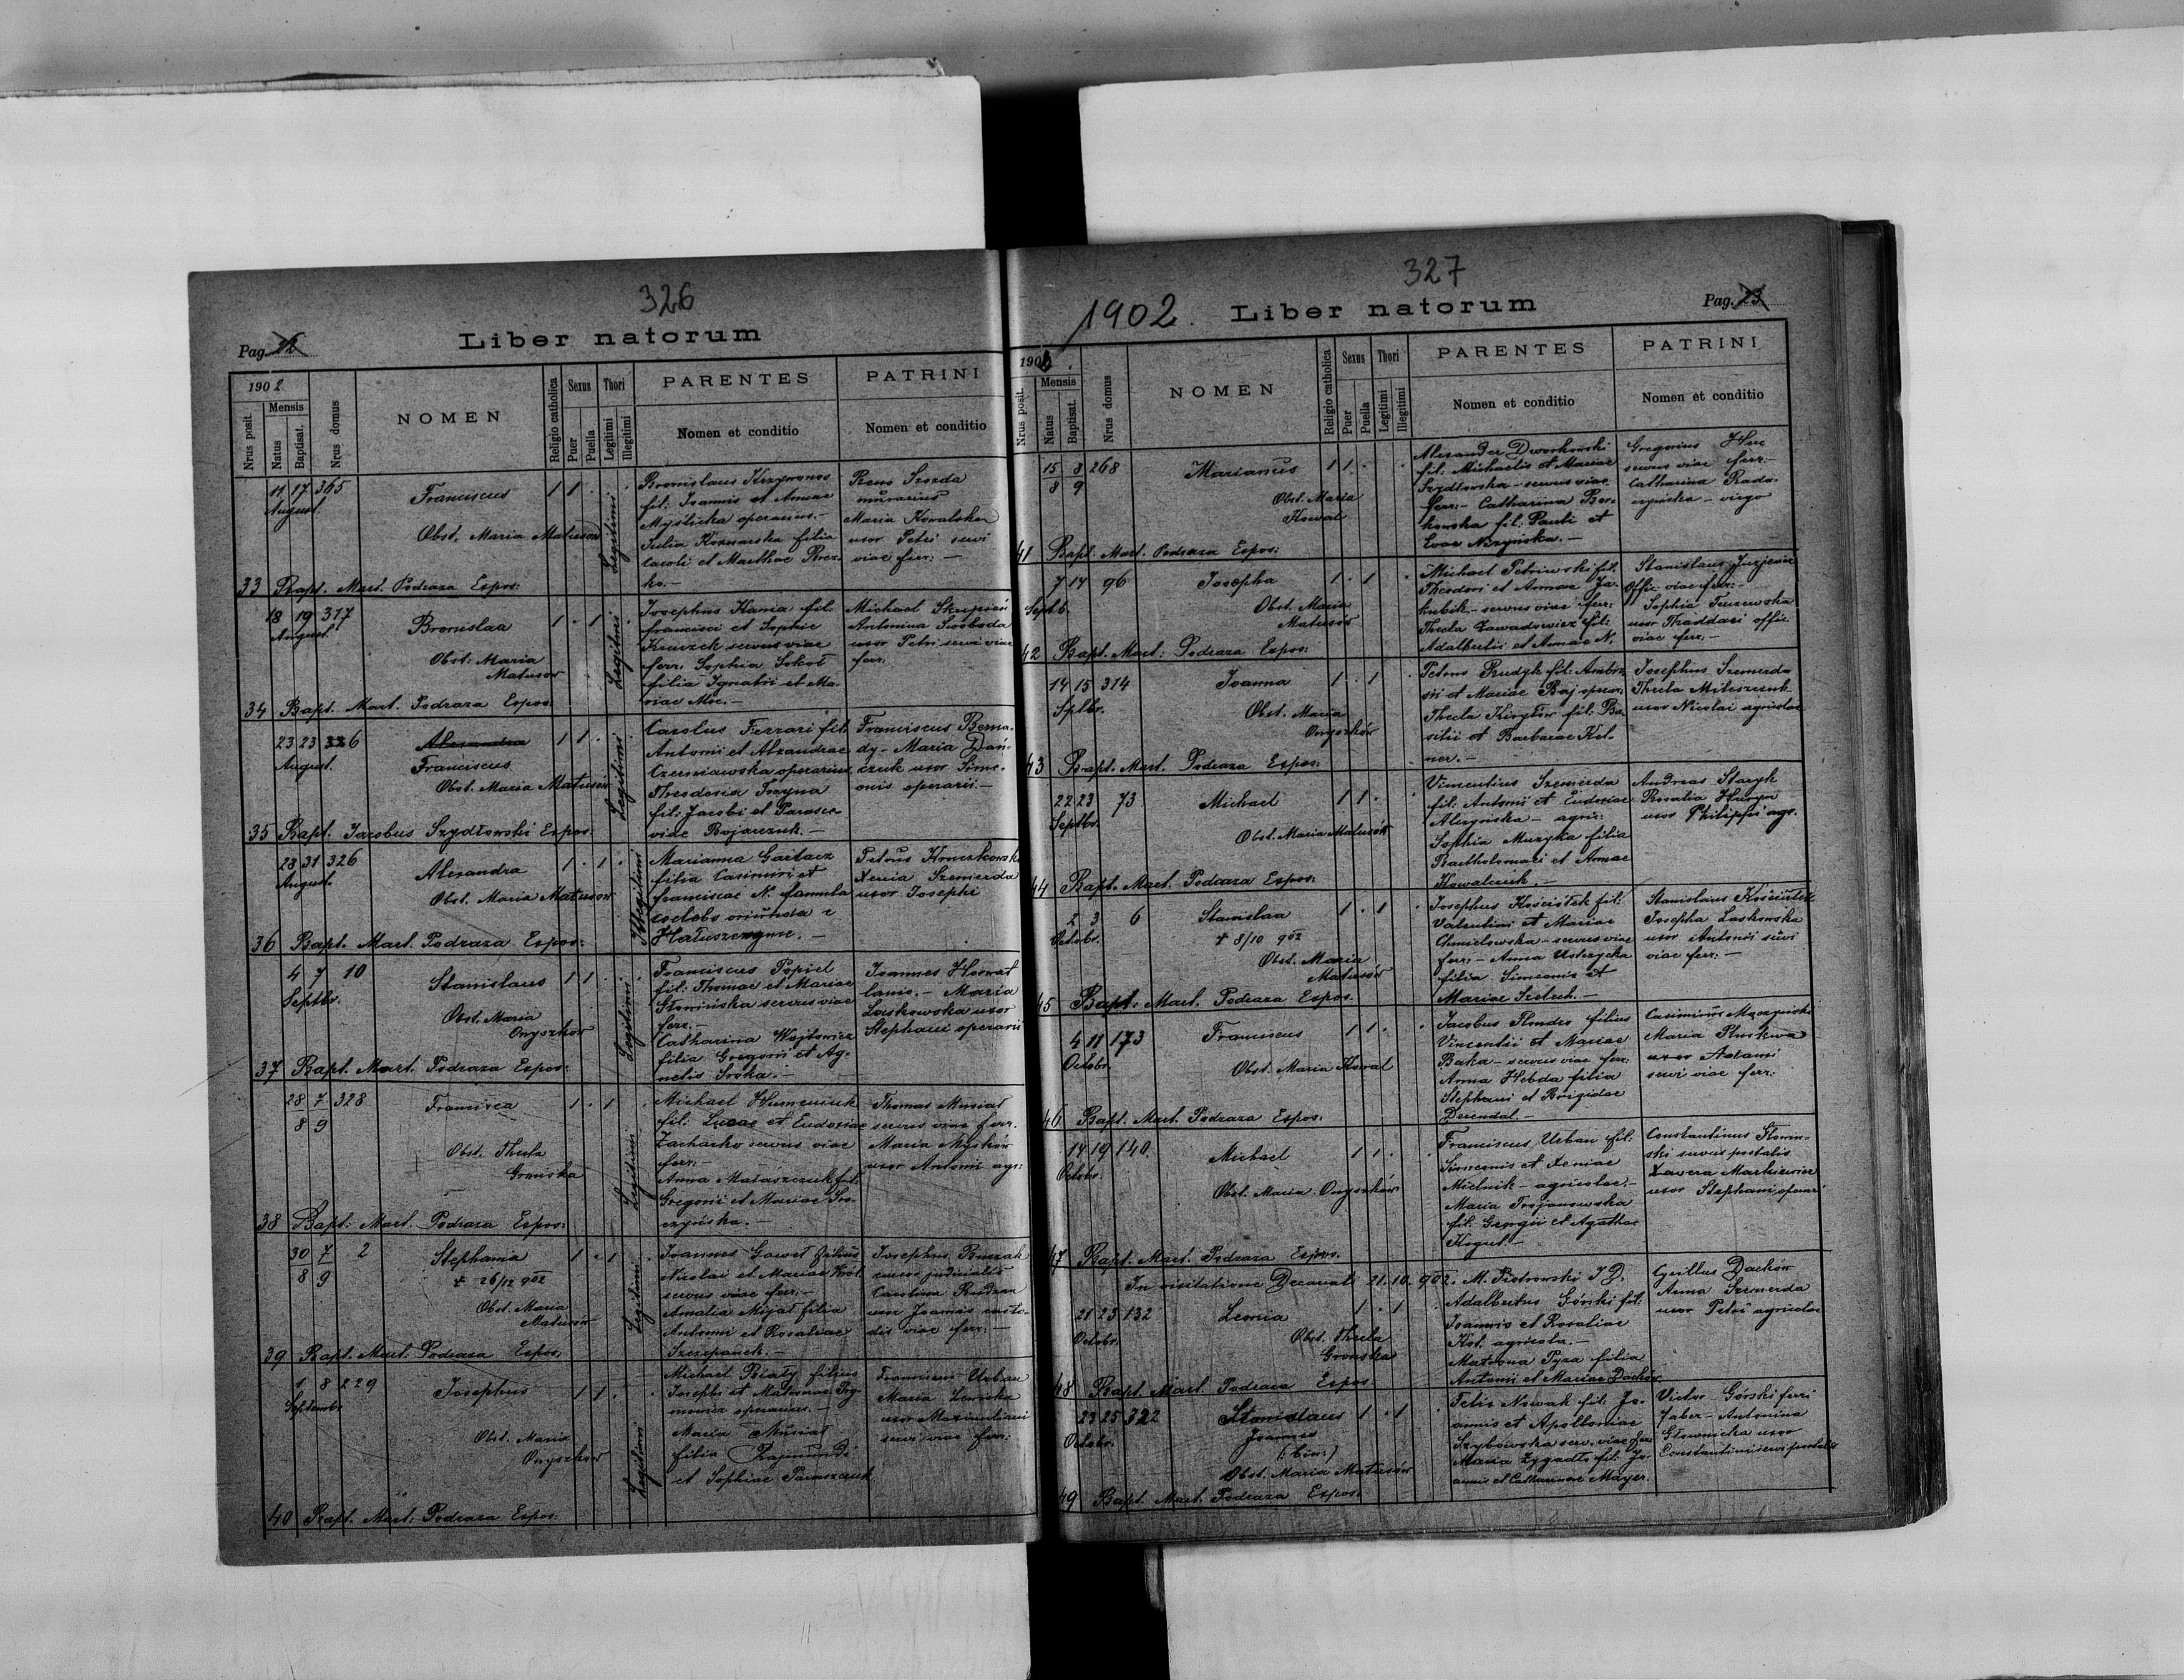 326
Pag.
Liber natorum
1902
Nrus posit.
Mensis
Natus
Baptisat.
Nrus domus
NOMEN
Religio catholica
Sexus
Puer
Puella
Thori
Legitimi
Illegitimi
PARENTES
Nomen et conditio
PATRINI
Nomen et conditio
11 17 365
August.
Franciscus
1 1
Obst. Maria Matusów
Legitimi
Bronislaus Krzywonos
fil: Joannis et Annae
Myślicka operarius.-
Julia
filia
Caroli et Marthae
ko.-
Szozda
murarius
Maria Kowalska
uxor Petri servi
viae ferr: -
33 Bapt. Mart. Podraza Expos:
18 19 317
August
Bronislaa
1 . 1
Obst: Maria
Matusów
Legitimi
Josephus Kania fil.
Francisci et Sophie
Kruczek servus viae
ferr: Sophia Sokoł
filia Ignatii et Ma-
riae Moc.-
Michael Skrpień
Antonina Swoboda
uxor Petri servi viae
ferr:
34 Bapt. Mart. Podraza Expos:
23 23 326
August.
Alexandra
Franciscus
1 1
Obst. Maria Matusów
Legitimi
Carolus Ferrari fil:
Antonii et Alexandrae
Czerniawska operarius
Theodosia
fil: Jacobi et Parasce-
viae Bojarczuk.-
Franciscus Berna-
dy - Maria Dań-
czuk uxor Sime-
onis operarii.-
35 Bapt. Jacobus Szydłowski Expos:
28 31 326
August.
Alexandra
1 . 1
Obst. Maria Matusów
Illegitimi
Marianna Gaitacz
filia Casimiri et
Franciscae N. famula
coelebs oriunda e
Hałuszczyńce.-
Petrus
Xenia Szemerda
uxor Josephi
36 Bapt. Mart. Podraza Expos:
4 7 10
Septbr.
Stanislaus
1 1
Obst. Maria
Onyszków
Legitimi
Franciscus Popiel
fil: Thomae et Mariae
Słomińska servus viae
ferr.-
Catharina Wojtowicz
filia Gregorii et Ag-
netis Sroka.-
Joannes Horwat
lanio.- Maria
Laskowska uxor
Stephani operarii
37 Bapt. Mart. Podraza Expos:
28 7 328
8 9
Francisca
1 . 1
Obst. Thecla
Gronska
Legitimi
Michael Humeniuk
fil: Lucae et Eudoxiae
Zacharko servus viae
ferr:-
Anna Mataszczuk fil:
Gregorii et Mariae Tro-
czyńska.-
Thomas Musiał
servus viae ferr.
Maria Myśków
uxor Antonii agr:
38 Bapt: Mart. Podraza Expos:
30 7 2
8 9
Stephania
1 . 1
+ 26/12 902
Obst. Maria
Matusów
Legitimi
Joannes Gaweł filius
Nicolai et Mariae Król
servus viae ferr:-
Amalia Migał filia
Antonii et Rosaliae
Szczepanek.-
Josephus
cursor judicialis
Carolina
uxor Joannis custo-
dis viae ferr:-
39 Bapt. Mart: Podraza Expos:
1 8 229
Septembr.
Josephus
1 1
Obst. Maria
Onyszków
Legitimi
Michael Biały filius
Josephi et
operarius.-
Maria Musiał
filia Rajmundi
et Sophiae Panaszczuk
Franciscus Urban
Maria
uxor Maximiliani
servi viae ferr:
40 Bapt. Mart: Podraza Expos:
327
1902. Liber natorum
Pag. 23
190
Nrus posit.
Mensis
Natus
Baptisat.
Nrus domus
NOMEN
Religio catholica
Sexus
Puer
Puella
Thori
Legitimi
Illegitimi
PARENTES
Nomen et conditio
PATRINI
Nomen et conditio
15 8 268
8 9
Marianus
1 1
Obst. Maria
Kowal
Alexander Dworkowski
fil: Michaelis et Mariae
Szydłowska - servus viae
ferr:- Catharina Ber-
kowska fil: Pauli et
Evae Niżyńska.-
Gregorius
servus viae ferr:-
Catharina Rado-
- virgo
41 Bapt. Mart. Podraza Expos:
7 14 96
Septb.
Josepha
1 . 1
Obst. Maria
Matusów
Michael Petriwski fil:
Theodori et Annae Ja-
kubik - servus viae ferr:
Thecla Zawadowicz fil:
Adalberti et Annae N.
Stanislaus
Offic. viae ferr:-
Sophia
uxor Thaddaei offic.
viae ferr:-
42 Bapt. Mart: Podraza Expos:
14 15 314
Sptbr.
Joanna
1 . 1
Obst. Maria
Onyszków
Petrus Prudyk fil: Ambro-
sii et Mariae Baj operar:
Thecla Kiryłów fil: Ba-
silii et Barbarae Kel-
ner.-
Josephus Szemerda
Thecla
uxor Nicolai agricolae
43 Bapt. Mart. Podraza Expos:
22 23 73
Septbr.
Michael
1 1
Obst. Maria Matusów
Vincentius Szemerda
fil: Antonii et Eudoxiae
- agric:
Sophia Muzyka filia
Bartholomaei et Annae
Kowalczuk.-
Andreas Staryk
Rosalia
uxor Philippi agr.
44 Bapt. Mart. Podraza Expos:
2 3 6
Octobr.
Stanislaa
1 . 1
+ 8/10 902
Obst. Maria
Matusów
Josephus Kościołek fil:
Valentini et Mariae
Chmielowska - servus viae
ferr:- Anna Ustrzycka
filia Simeonis et
Mariae Szeluch.-
Stanislaus Kościółek
Josepha Laskowska
uxor Antonii servi
viae ferr:-
45 Bapt: Mart. Podraza Expos.
4 11 173
Octobr.
Franciscus
1 1
Obst. Maria Kowal
Jacobus Mondes filius
Vincentii et Mariae
Baka - servus viae ferr:
Anna Hebda filia
Stephani et Brigidae
Derendal.-
Casimirus
Maria Pluskwa
uxor Adami
servi viae ferr:
46 Bapt. Mart. Podraza Expos:
14 19 140.
Octobr.
Michael
1 1
Obst. Maria Onyszków
Franciscus Urban fil:
Simeonis et Xeniae
Mielnik - agricolae.-
Maria Trojanowska
fil: Georgii et Agathae
Kogut.-
Constantinus Słowin-
ski servus postalis
Xavera Markiewicz
uxor Stephani operari
47 Bapt. Mart. Podraza Expos.
In visitatione Decanali 21.10.902. M. Piotrowski V.D.
21 25 132
Octobr.
Leonia
1 . 1
Obst. Thecla
Gronska
Adalbertus Górski fil:
Joannis et Rosaliae
Kot agricola.-
Matrona Pyza filia
Antonii et Mariae Daćków
Cyrillus Daćków
Anna Szemerda
uxor Petri agricolae
48 Bapt. Mart. Podraza Expos
23 25 322
Octobr.
Stanislaus
Joannes
(bin:)
1 . 1
Obst. Maria Matusów
Felix Nowak fil: Jo-
annis et Apolloniae
Szybowska serv. viae ferr
Maria Zygadło fil: Jo-
annis et Catharinae Mayer.
Victor Górski ferri
faber - Antonina
Słownicka uxor
Constantini servi postalis
49 Bapt. Mart. Podraza Expos: